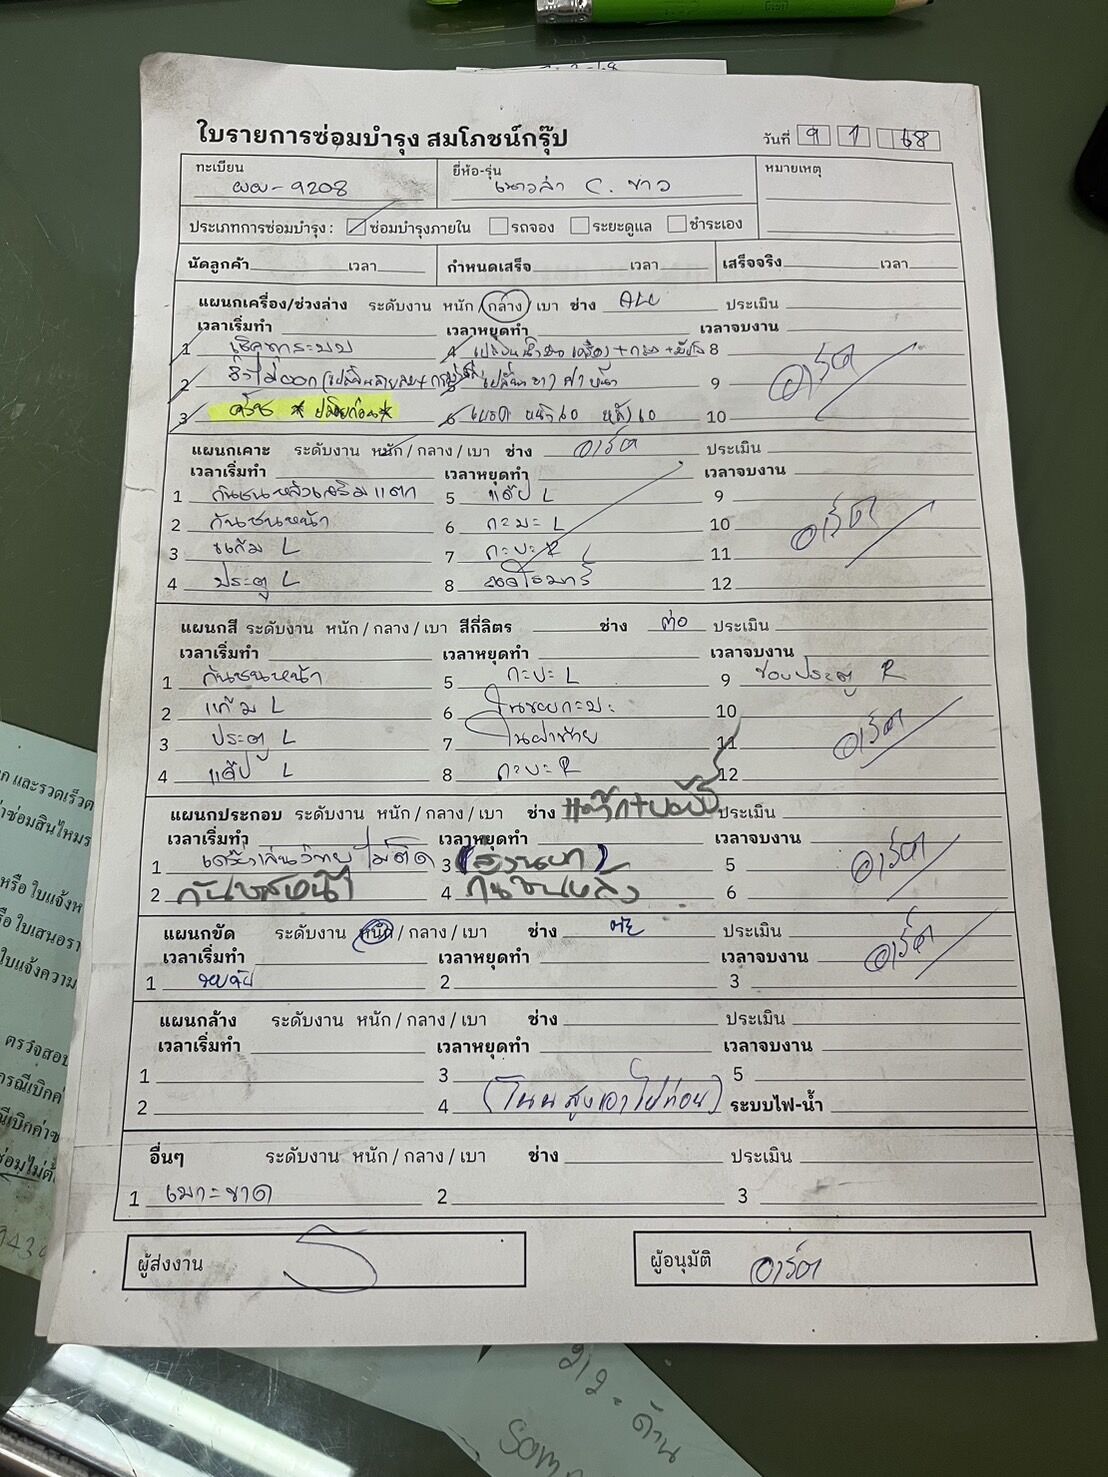 ใบรายการซ่อมบำรุง สมโภชน์กรุ๊ป
วันที่ 9 1 68
ทะเบียน ผผ-9208
ยี่ห้อ-รุ่น นาวล่า C. ขาว
หมายเหตุ
ประเภทการซ่อมบำรุง : ซ่อมบำรุงภายใน รถจอง ระยะดูแล ชำระเอง
นัดลูกค้า เวลา กำหนดเสร็จ เวลา เสร็จจริง เวลา
แผนกเครื่อง/ช่วงล่าง ระดับงาน หนัก /กลาง/ เบา ช่าง ประเมิน
เวลาเริ่มทำ เวลาหยุดทำ เวลาจบงาน
1 เช็คทุกระบบ 4 8
2 5 9
3 6 เบรค หน้า 60 หลัง 60 10
อาร์ต
แผนกเคาะ ระดับงาน หนัก / กลาง / เบา ช่าง อาร์ต ประเมิน
เวลาเริ่มทำ เวลาหยุดทำ เวลาจบงาน
1 กันชนหลังเสริมแตก 5 แค๊ป L 9
2 กันชนหน้า 6 กะบะ L 10
3 แก้ม L 7 กะบะ R 11
4 ประตู L 8 12
อาร์ต
แผนกสี ระดับงาน หนัก / กลาง / เบา สีกี่ลิตร ช่าง ต่อ ประเมิน
เวลาเริ่มทำ เวลาหยุดทำ เวลาจบงาน
1 กันชนหน้า 5 กะบะ L 9 ขอบประตู R
2 แก้ม L 6 ในขอบกะบะ 10
3 ประตู L 7 ในฝาท้าย 11
4 แค๊ป L 8 กะบะ R 12
อาร์ต
แผนกประกอบ ระดับงาน หนัก / กลาง / เบา ช่าง ประเมิน
เวลาเริ่มทำ เวลาหยุดทำ เวลาจบงาน
1 เครื่องเล่นวิทยุไม่ติด 3 5
2 กันชนหน้า 4 กันชนหลัง 6
อาร์ต
แผนกขัด ระดับงาน หนัก / กลาง / เบา ช่าง ประเมิน
เวลาเริ่มทำ เวลาหยุดทำ เวลาจบงาน
1 2 3
อาร์ต
แผนกล้าง ระดับงาน หนัก / กลาง / เบา ช่าง ประเมิน
เวลาเริ่มทำ เวลาหยุดทำ เวลาจบงาน
1 3 5
2 4 ระบบไฟ-น้ำ
อื่นๆ ระดับงาน หนัก / กลาง / เบา ช่าง ประเมิน
1 เบาะขาด 2 3
ผู้ส่งงาน
ผู้อนุมัติ อาร์ต